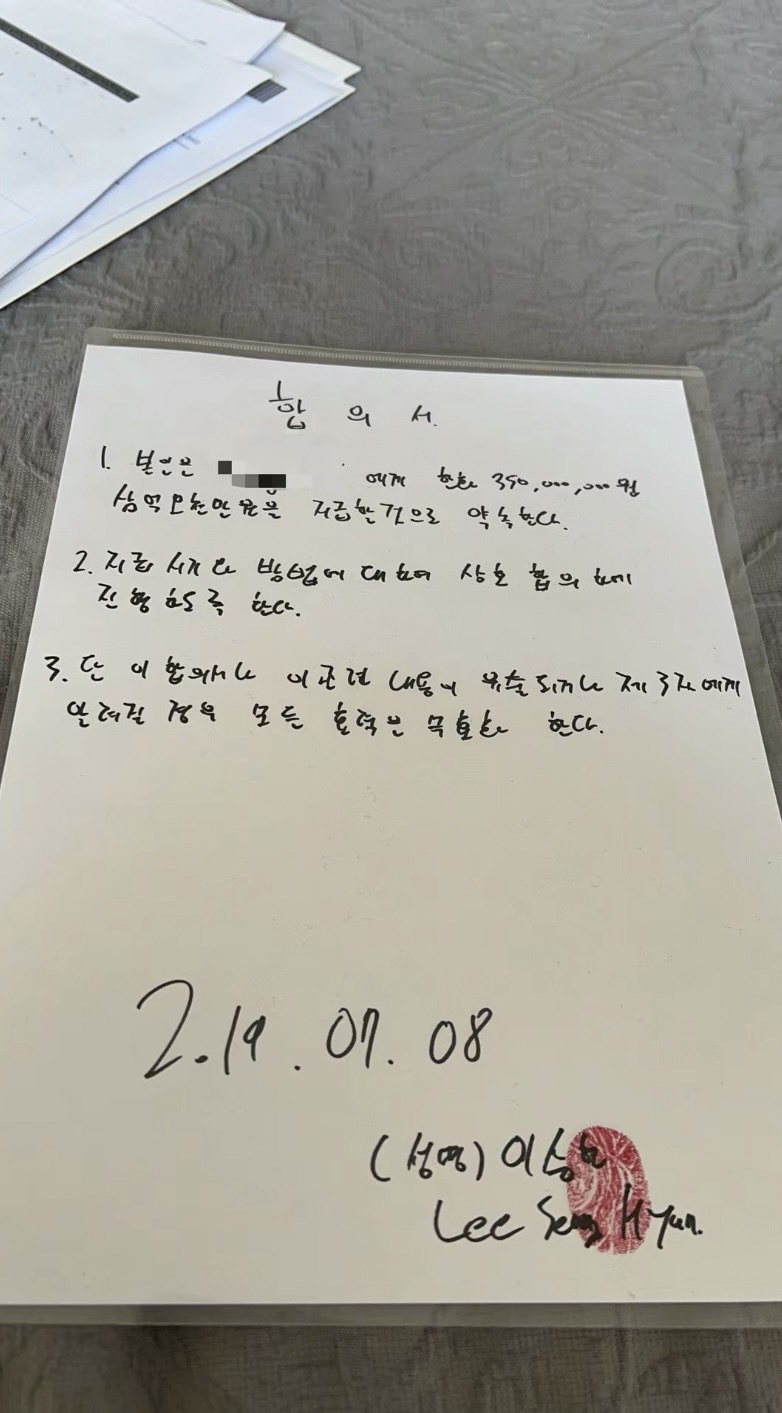 합 의 서.
1. 본인은 에게 한화 350,000,000원
삼억오천만원을 지급할것으로 약속한다.
2. 지급 시기와 방법에 대하여 상호 합의하에
진행하도록 한다.
3. 단 이 합의서나 이 관련 내용이 유출되거나 제3자에게
알려질 경우 모든 효력은 무효화 한다.
2.19. 07. 08
(성명) 이승현
Lee Seng Hyun.